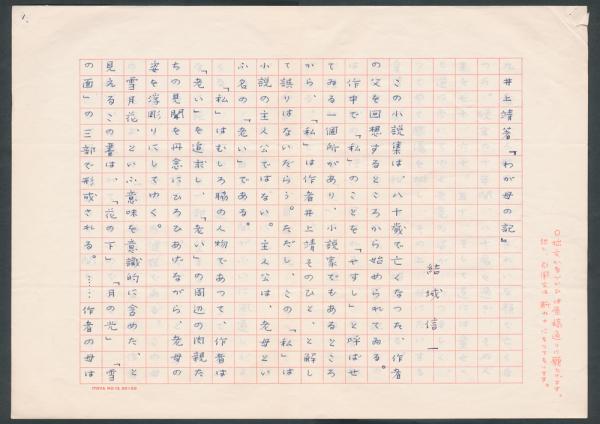 井上靖著『わが母の記』
結城信一
この小説集は、八十歳で亡くなった、作者
の父を回想するところから始められてゐる。
作中で「私」のことを「やすし」と呼ばせ
てゐる一個所があり、小説家でもあるところ
から、「私」は作者井上靖そのひと、と解し
て誤りはないだらう。ただし、この「私」は
小説の主人公ではない。主人公は、老母とい
ふ名の「老い」である。
「私」はむしろ脇の人物であつて、作者は
「老い」を追求し、「老い」の周辺の肉親た
ちの見聞を丹念にひろひあげながら、老母の
姿を浮彫りにしてゆく。
雪月花、といふ意味を意識的に含めた、と
見えるこの書は、「花の下」「月の光」「雪
の面」の三部で形成される。……作者の母は